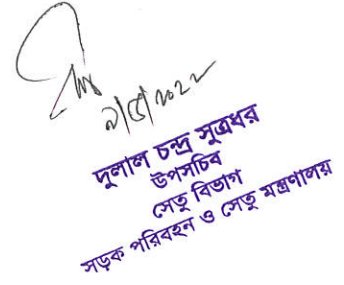 ৯/৫/২০২২
দুলাল চন্দ্র সুত্রধর
উপসচিব
সেতু বিভাগ
সড়ক পরিবহন ও সেতু মন্ত্রণালয়